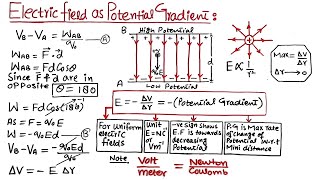 Electric field as Potential Gradient:
V_B - V_A = W_AB/q₀ — (A)
W_AB = F⃗ · d⃗
W_AB = Fd Cosθ
Since F & d are in
opposite θ = 180
W = Fd Cos(180)⁻¹
As F = q₀E
W = -q₀Ed — (B)
V_B - V_A = -q₀Ed/q₀
ΔV = - E Δr
B High Potential
d
A Low Potential
E ∝ 1/r²
Max = ΔV/Δr
Δr → 0
E = - ΔV/Δr = -(Potential Gradient)
For uniform
electric
fields
Unit
E = NC⁻¹
or
Vm⁻¹
-ve sign shows
E.F is towards
decreasing
Potential
P.G is Max rate
of change of
Potential w.r.t
Mini distance
Note, Volt/meter = Newton/Coulomb